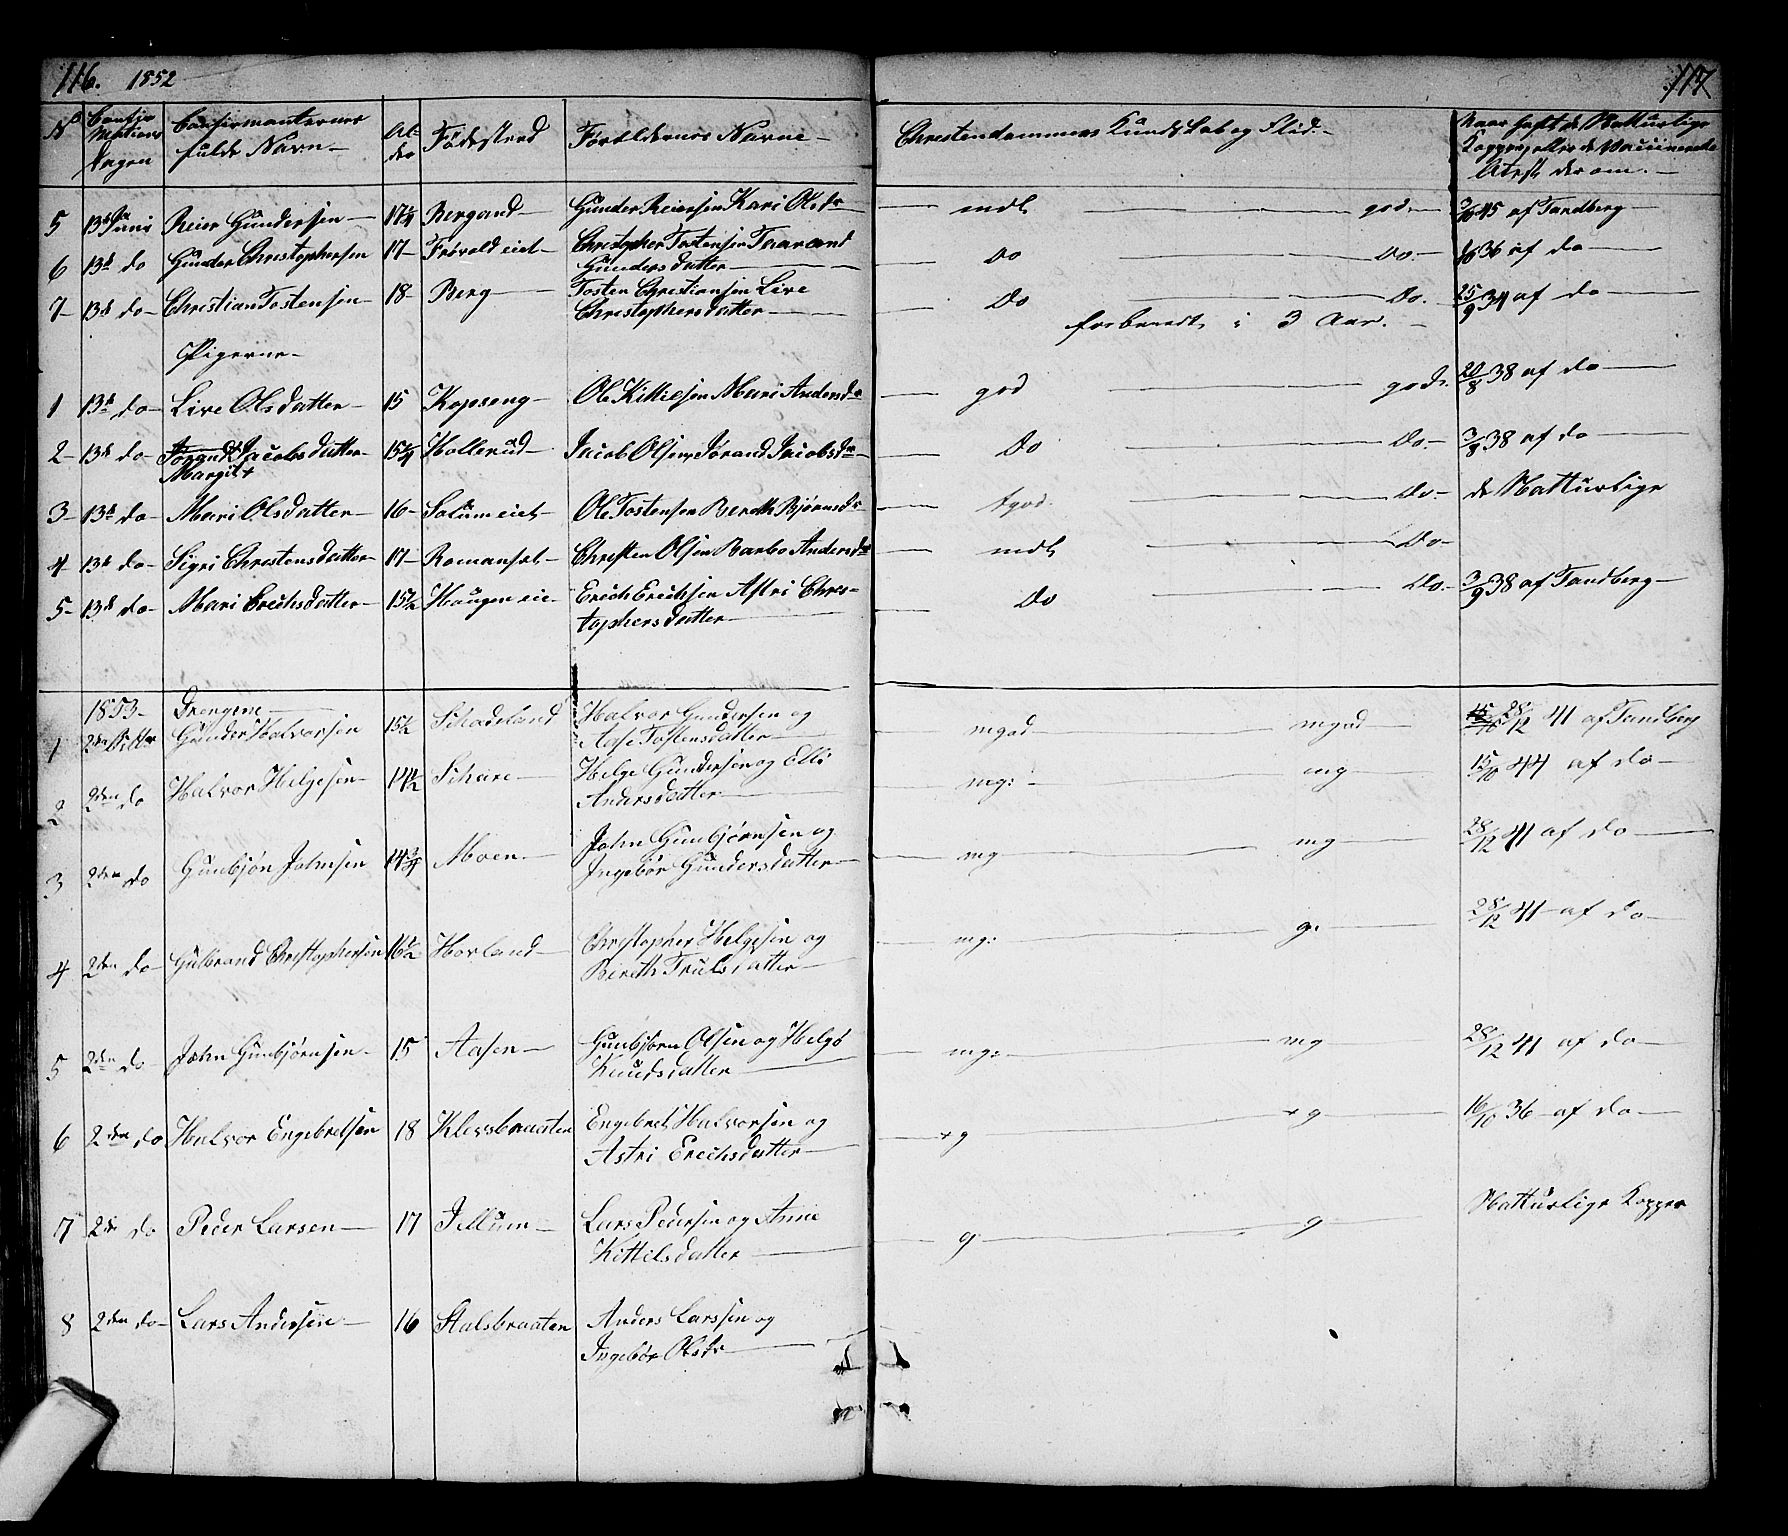 116. 1852
117
No Confirmations Dagen Confirmanternes fulde Navn Alder Fødestæd Forældernes Navne Christendommens Kunds Lob og Flid. Naar haft de Natturlige Kopper eller de Vaccinerede Atest derom.
5 13de Juni Reier Gundersen 17 1/4 Bergand Gunder Reiersen Kari Olsdr mdl god 3/10 45 af Tandberg
6 13de do Gunder Christophersen 17 Frøvold eiet Christopher Tostensen Taarand Gundersdatter Do Do 36 af do
7 13de do Christian Tostensen 18 Berg Tosten Christiansen Live Christophersdatter Do Do. 25/9 34 af do
forberedt i 3 Aar.
Pigerne
1 13de do Live Olsdatter 15 Kopseng Ole Kittilsen Mari Andersdr god god. 20/8 38 af do
2 13de do Jørand Jacobsdatter 15 1/4 Hollerud Jacob Olsen Jørand Jacobsdr Do Do 3/8 38 af do
Margit +
3 13de do Mari Olsdatter 16 Solum eiet Ole Tostensen Bereth Bjørnsdr tgod. Do de Natturlige
4 13de do Sigri Christensdatter 17 Romanset Christen Olsen Barbo Andersdr mdl Do
5 13de do Mari Erichsdatter 15 1/2 Haugen eie Erich Erichsen Astri Christophersdatter Do Do 3/9 38 af Tandberg
1853 Drengene
1 2den Gunder Halvorsen 15 1/2 Skadeland Halvor Gundersen og Aase Tostensdatter mgod mgod 28/12 41 af Tandberg
2 2den do Halvor Helgesen 14 1/2 Skare Helge Gundersen og Elli Andersdatter mg: mg 15/10 44 af do
3 2den do Gunbjøn Johnsen 14 3/4 Moen John Gunbjørnsen og Ingebør Gundersdatter mg mg 28/12 41 af do
4 2den do Gulbrand Christophersen 16 1/2 Horland Christopher Helgesen og Bereth Trulsdatter mg: g. 28/12 41 af do
5 2den do John Gunbjørnsen 15 Aasen Gunbjørn Olsen og Helge Knudsdatter mg: mg 28/12 41 af do
6 2den do Halvor Engebretsen 18 Klevsbraaten Engebret Halvorsen og Astri Erichsdatter +g +g 16/10 36 af do
7 2de do Peder Larsen 17 Jellum Lars Pedersen og Anne Kittilsdatter g g Natturlige Kopper
8 2den do Lars Andersen 16 Stalsbraaten Anders Larssen og Ingebør Olsdr